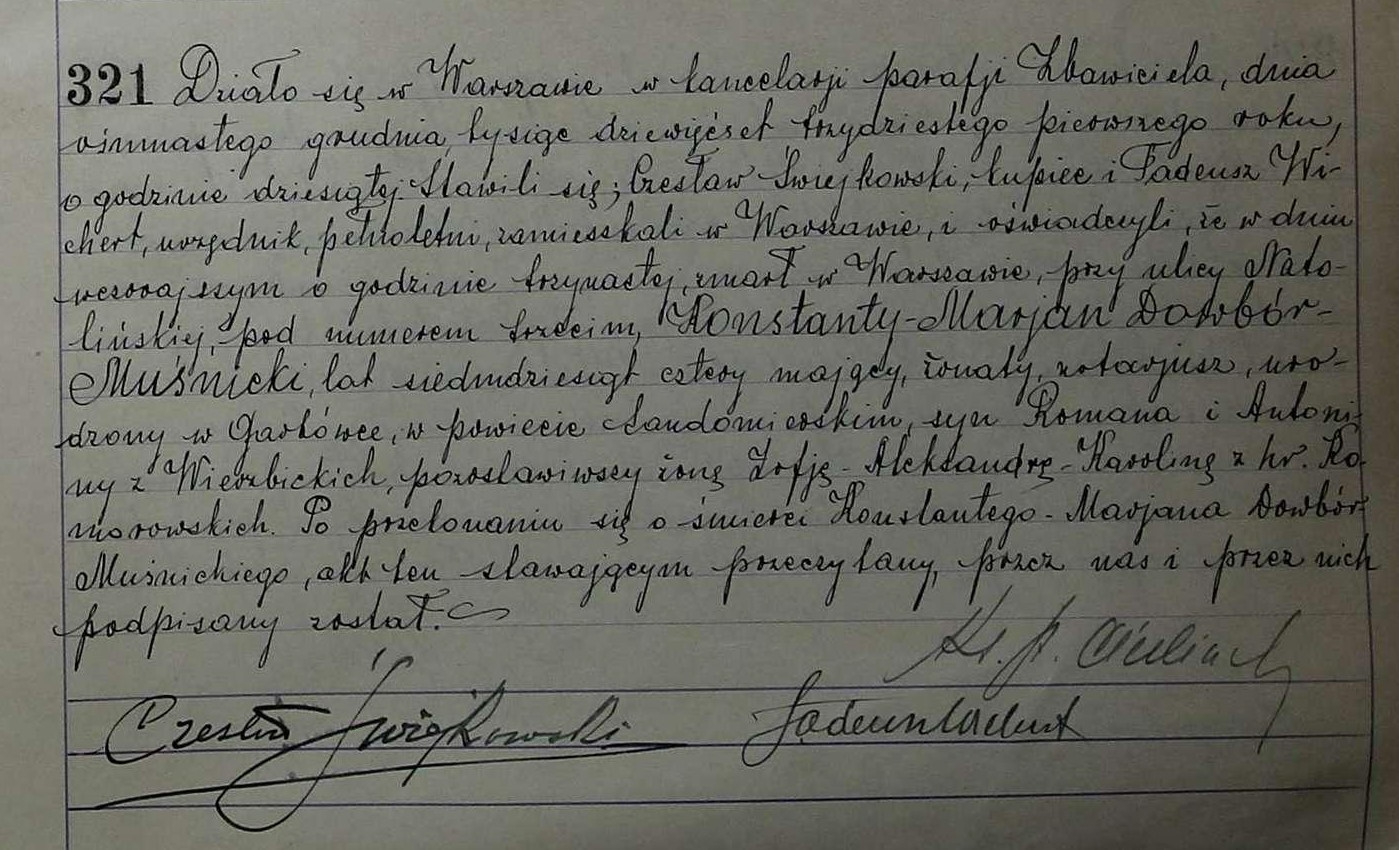 321 Działo się w Warszawie w kancelarji parafji Zbawiciela, dnia
ośmnastego grudnia, tysiąc dziewięćset trzydziestego pierwszego roku,
o godzinie dziesiątej. Stawili się; Czesław Świejkowski, kupiec i Tadeusz Wi-
chert, urzędnik, pełnoletni, zamieszkali w Warszawie, i oświadczyli, że w dniu
wczorajszym o godzinie trzynastej, zmarł w Warszawie, przy ulicy Nato-
lińskiej, pod numerem trzecim, Konstanty-Marjan Dowbór-
Muśnicki, lat siedmdziesiąt cztery mający, żonaty, notarjusz, uro-
dzony w Garbówce, w powiecie Sandomierskim, syn Romana i Antoni-
ny z Wierzbickich, pozostawiwszy żonę Zofję-Aleksandrę-Karolinę z hr. Ko-
morowskich. Po przekonaniu się o śmierci Konstantego-Marjana Dowbór-
Muśnickiego, akt ten stawającym przeczytany, przez nas i przez nich
podpisany został.
Ks. P.
Czesław Świejkowski Tadeusz Wichert